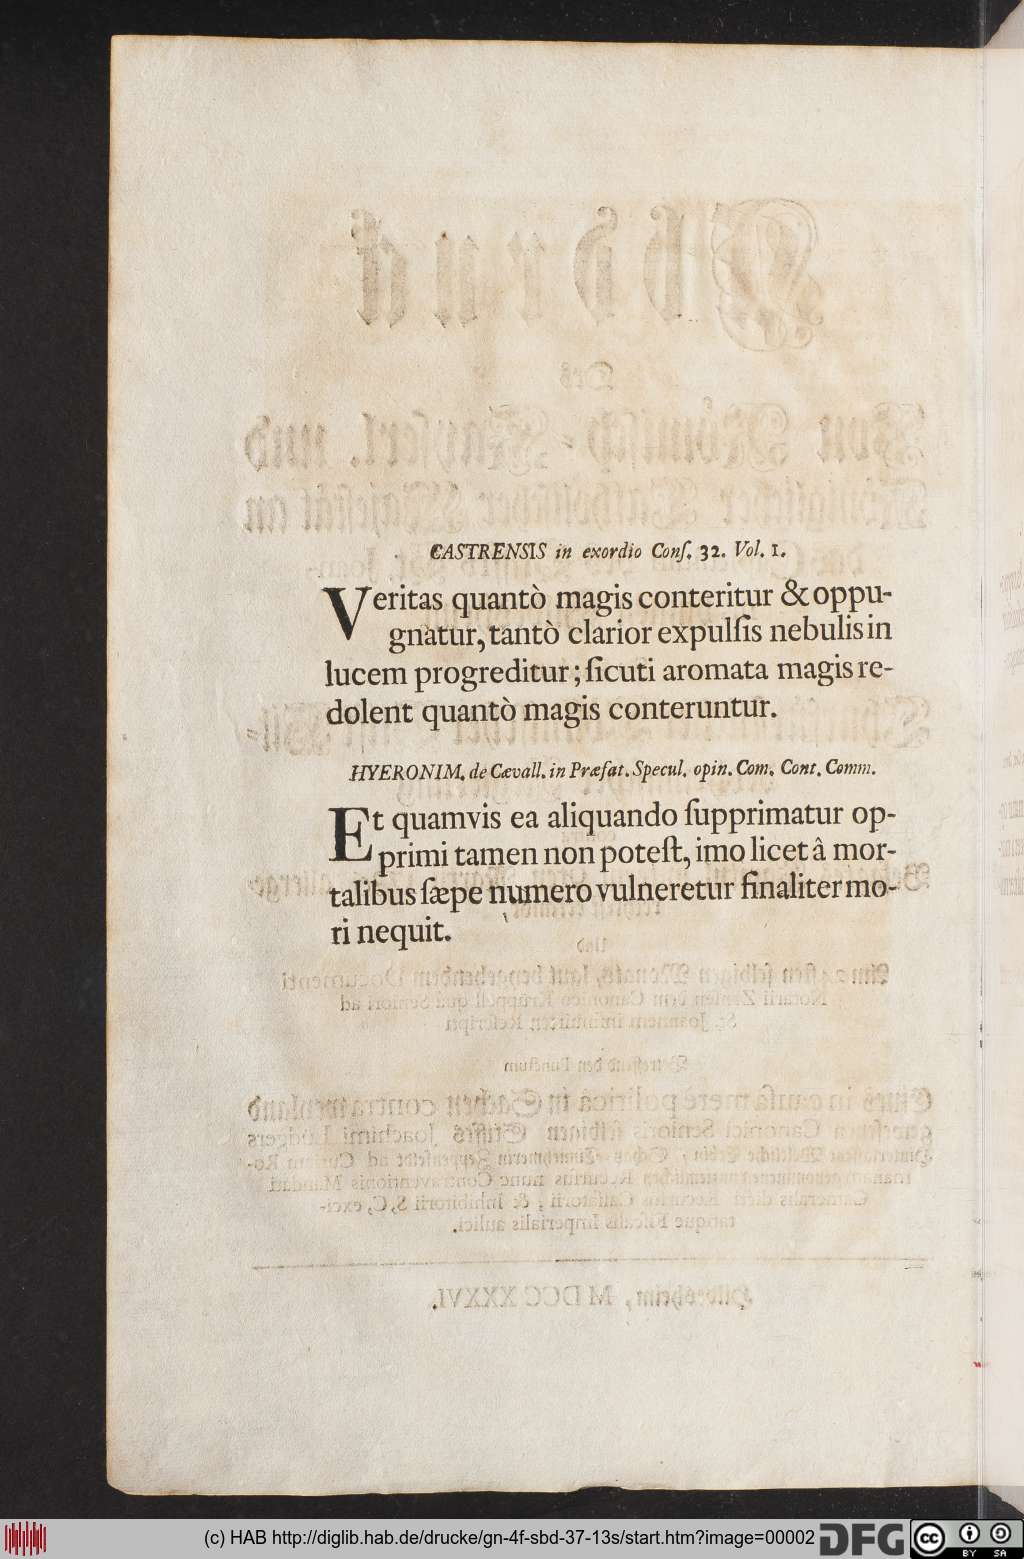 CASTRENSIS in exordio Conſ. 32. Vol. 1.
Veritas quantò magis conteritur & oppu-
gnatur, tantò clarior expulſis nebulis in
lucem progreditur; ſicuti aromata magis re-
dolent quantò magis conteruntur.
HYERONIM. de Cævall. in Præfat. Specul. opin. Com. Cont. Comm.
Et quamvis ea aliquando ſupprimatur op-
primi tamen non poteſt, imo licet â mor-
talibus ſæpe numero vulneretur finaliter mo-
ri nequit.
(c) HAB http://diglib.hab.de/drucke/gn-4f-sbd-37-13s/start.htm?image=00002 DFG cc BY SA